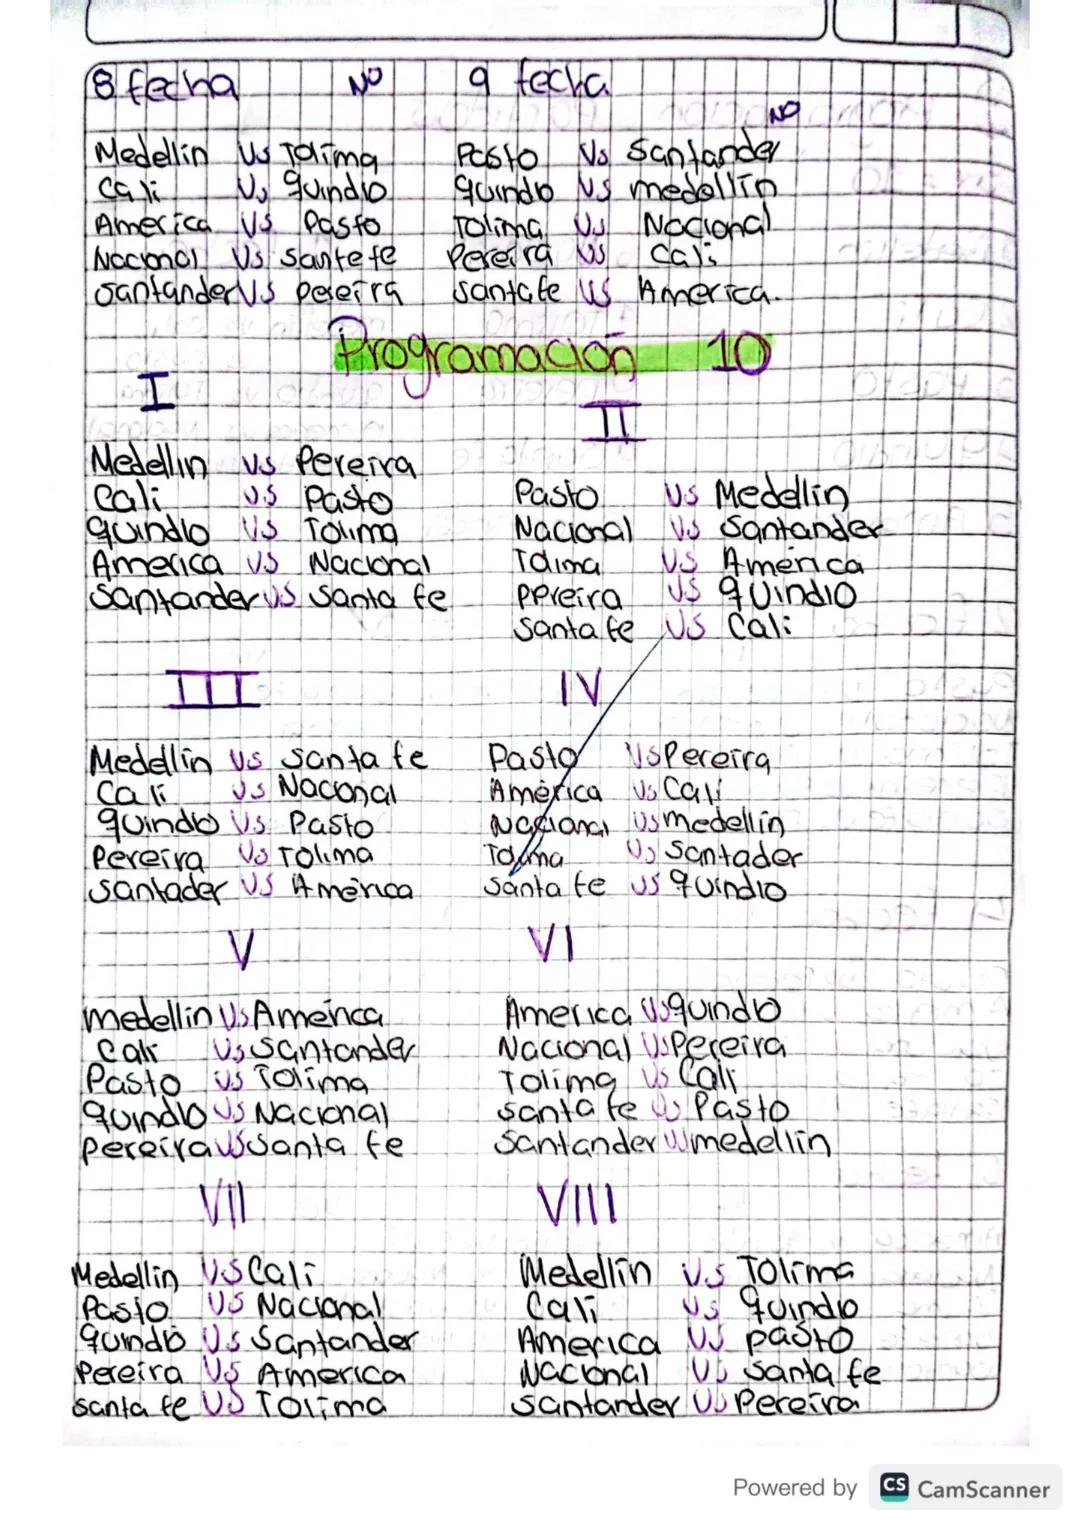 8 fecha NO
Medellin Vs Tolima
Cali Vs quindio
America Vs Pasto
Nacional Vs Santefe
Santander Vs pereira
9 fecha NO
Pasto Vs Santander
quindio Vs medellin
Tolima Vs Nacional
Pereira Vs Cali
Santafe Vs America.
Programación 10
I
Medellin vs Pereira
Cali vs Pasto
quindio Vs Tolima
America vs Nacional
Santander vs Santa fe
II
Pasto vs Medellin
Nacional vs Santander
Tolima vs América
Ppreira vs quindio
Santa fe vs Cali
III
Medellin vs santa fe
Cali vs Nacional
quindio Vs Pasto
Pereira Vs Tolima
Santader vs América
IV
Pasto Vs Pereira
América Vs Cali
Nacional vs medellin
Tolima Vs Santader
Santa fe vs quindio
V
medellin Vs América
Cali Vs Santander
Pasto vs Tolima
quindio Vs Nacional
pereira Vs santa fe
VI
America Vs quindio
Nacional Vs Pereira
Tolima Vs Cali
santa fe Vs Pasto
Santander Vs medellin
VII
Medellin VS Cali
Pasto VS Nacional
quindio Vs Santander
Pereira Vs America
santa fe VS Tolima
VIII
Medellin Vs Tolima
Cali Vs quindio
America Vs pasto
Nacional Vs santa fe
Santander Vs Pereira
Powered by CS CamScanner